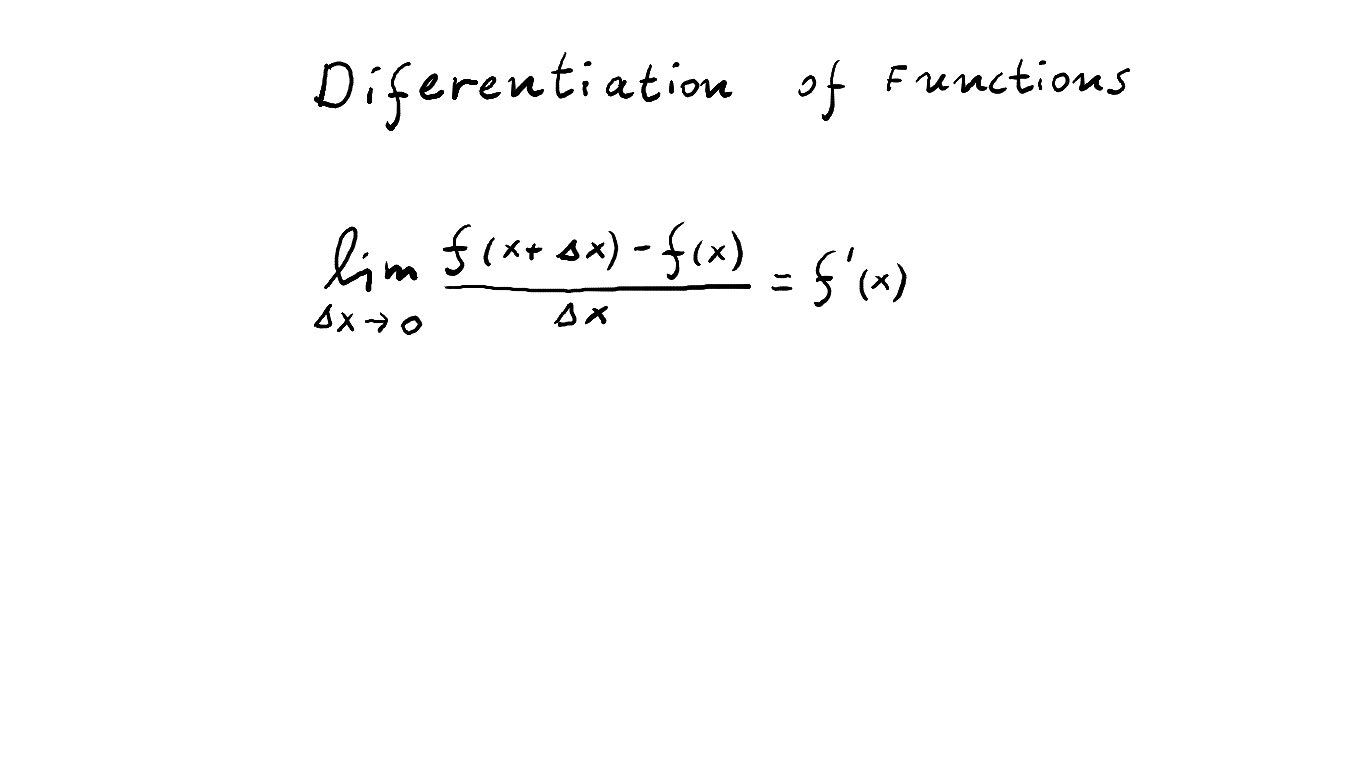 Diferentiation of Functions
lim Δx→0 (f(x+Δx)-f(x))/Δx = f'(x)